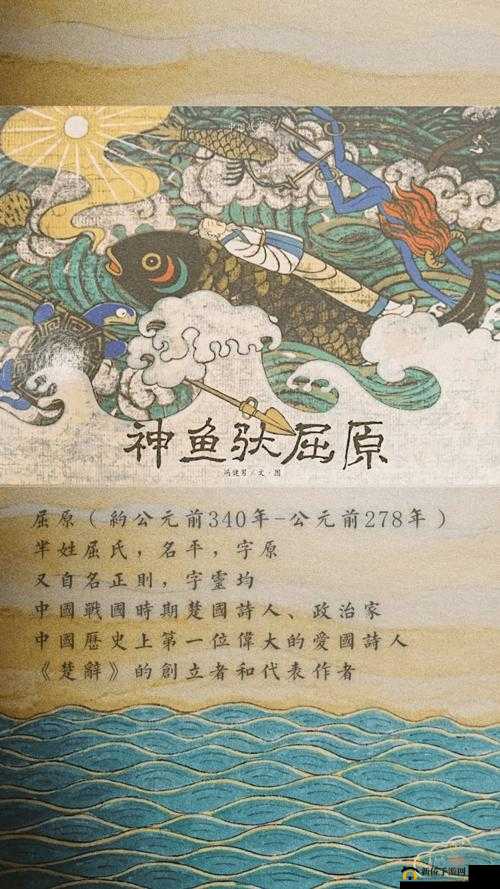 神鱼驮屈原
冯健男/文·图
屈原（約公元前340年-公元前278年）
芈姓屈氏，名平，字原
又自名正則，字靈均
中國戰國時期楚國詩人、政治家
中國歷史上第一位偉大的愛國詩人
《楚辭》的創立者和代表作者
新侨手游网